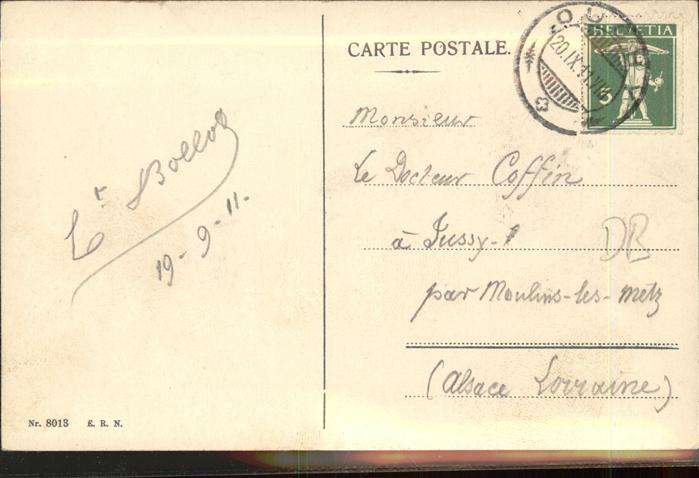 CARTE POSTALE.
HELVETIA
5
20.IX.11
Monsieur
Le Docteur Coffin
à Jussy
par Moulins-les-Metz
(Alsace Lorraine)
DB
19-9-11.
Nr. 8013 E. R. N.